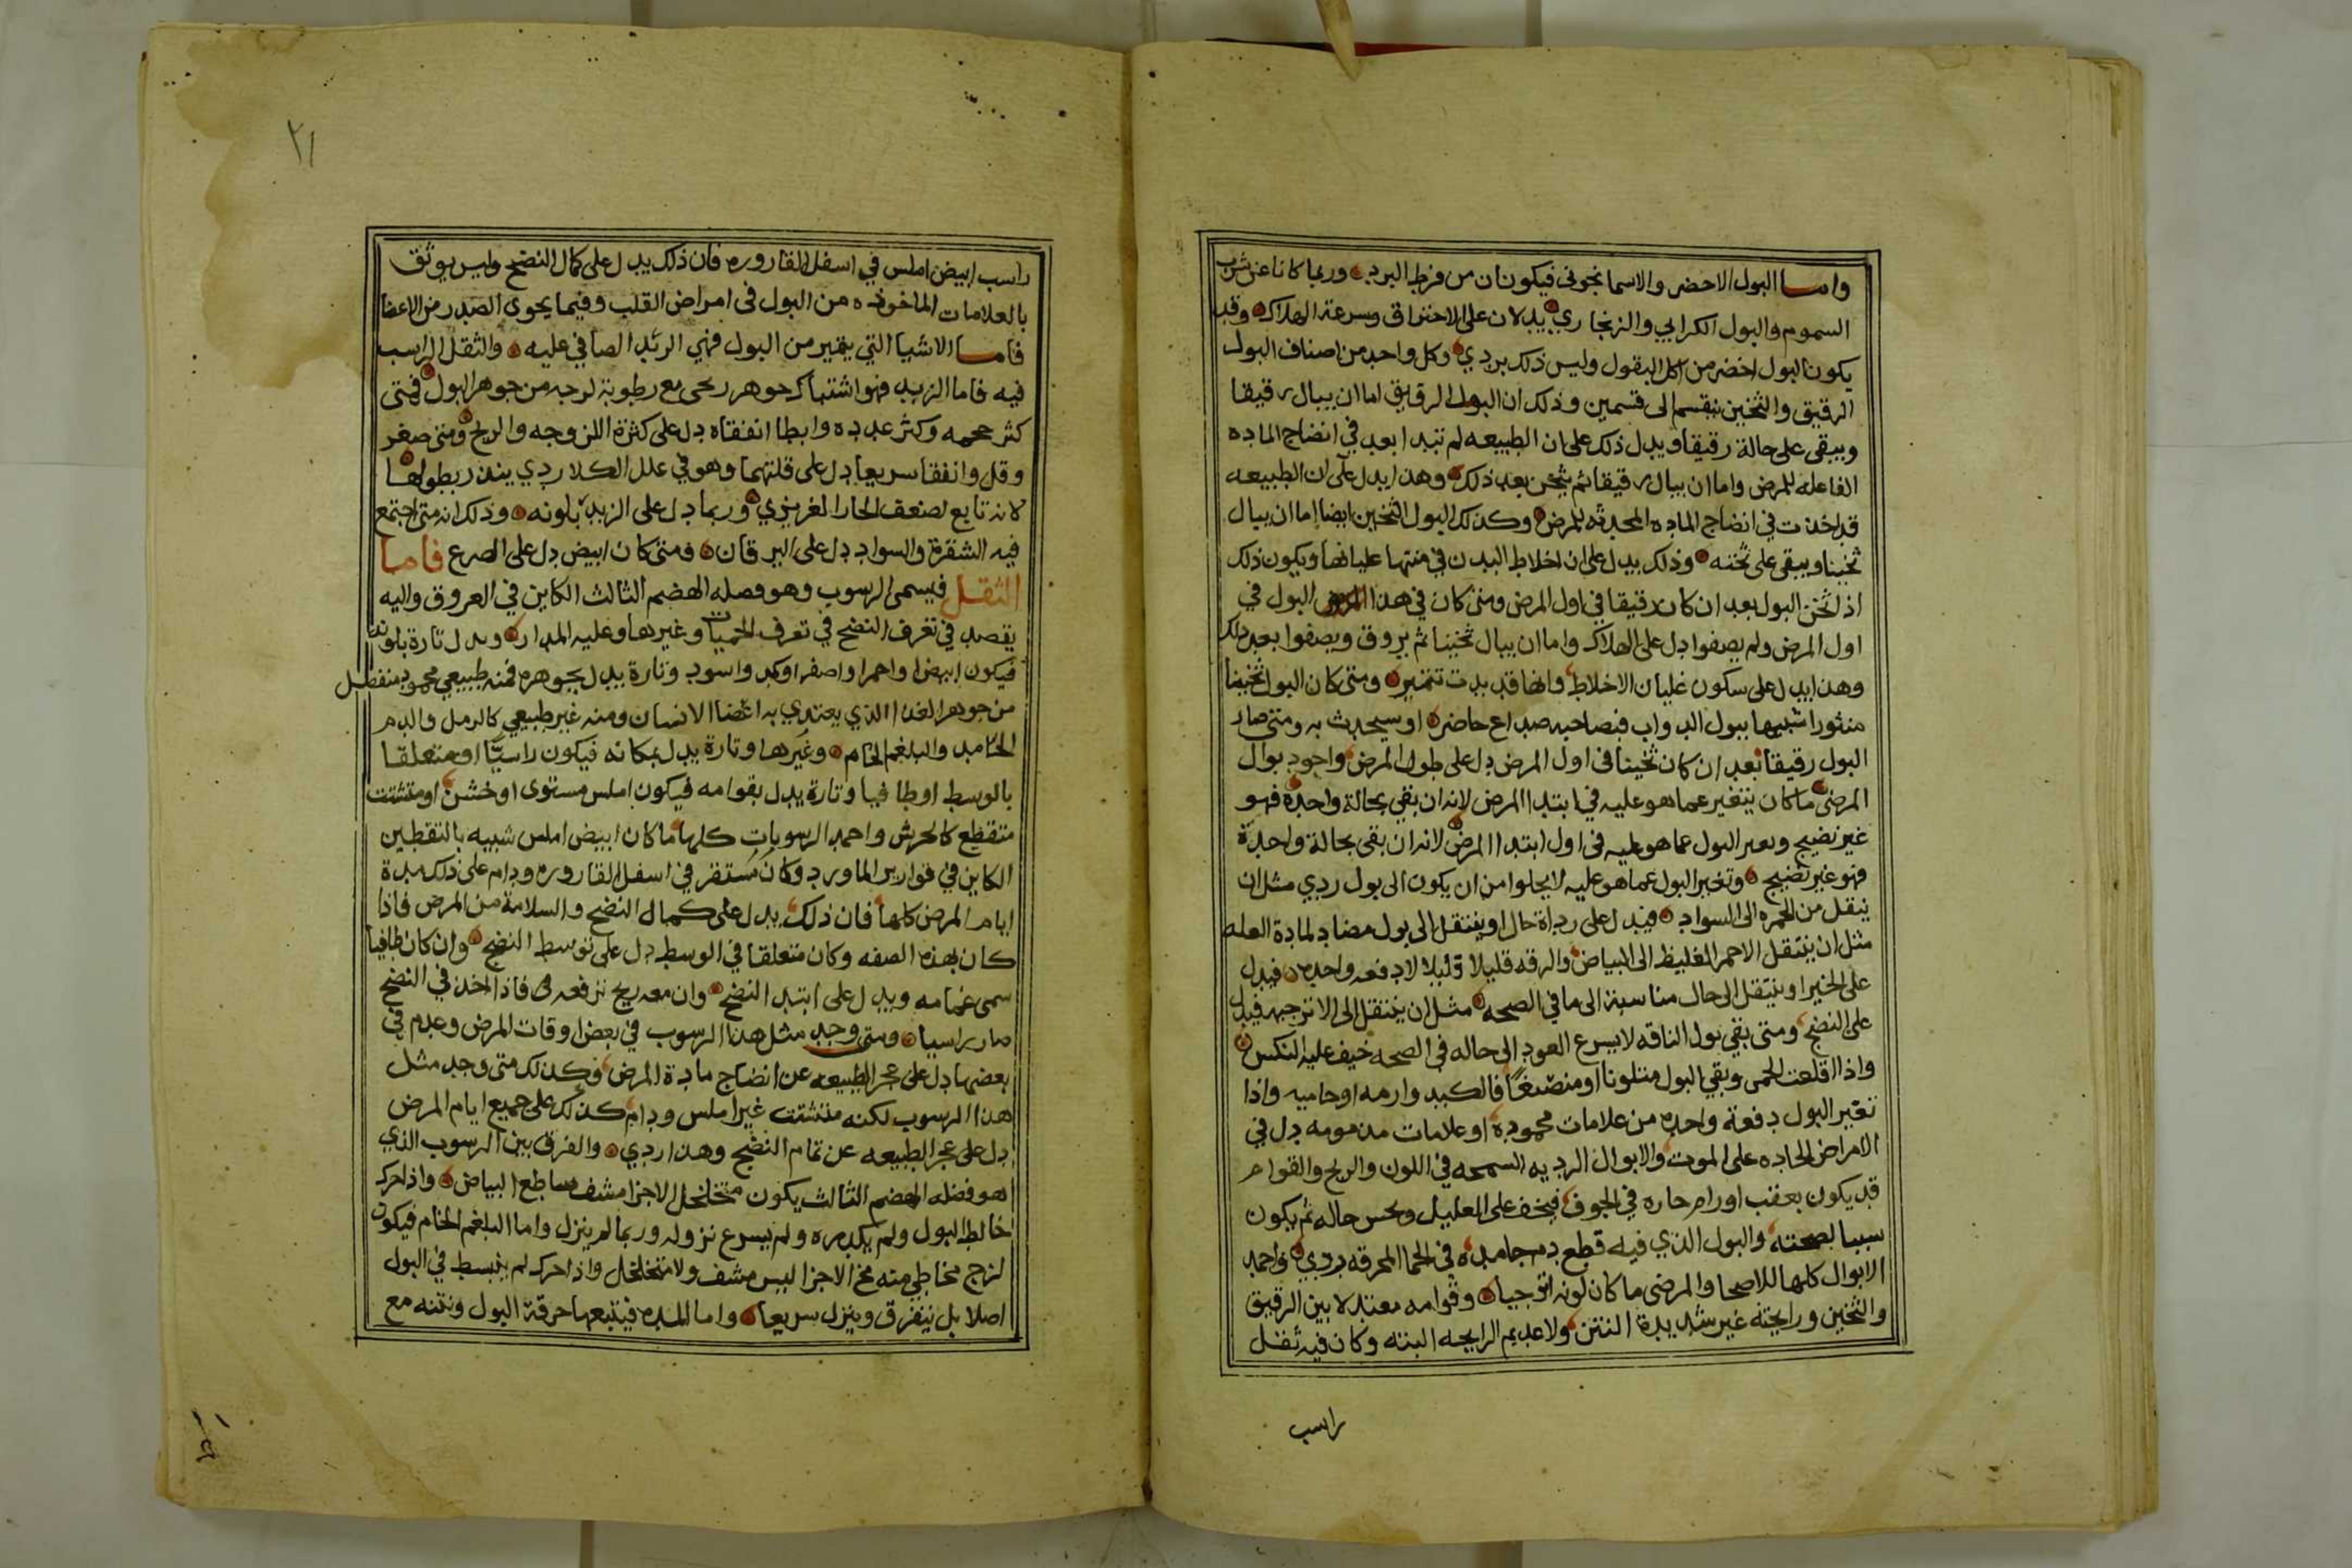 واما البول الاخضر والاسمانجوني فيكونان من فرط البرد وربما كانا عن شرب
السموم والبول الكراثي والزنجاري يدلان على الاحتراق وسرعة الهلاك وقد
يكون البول اخضر من اكل البقول وليس ذلك بردي وكل واحد من اصناف البول
الرقيق والثخين ينقسم الى قسمين وذلك ان البول الرقيق اما ان يبال رقيقا
ويبقى على حالة رقيقا ويدل ذلك على ان الطبيعه لم تبدا بعد في انضاج الماده
الفاعله للمرض واما ان يبال رقيقا ثم يثخن بعد ذلك وهذا يدل على ان الطبيعه
قد اخذت في انضاج الماده المحدثه للمرض وكذلك البول الثخين ايضا اما ان يبال
ثخينا ويبقى على ثخنه وذلك يدل على ان اخلاط البدن في منتها غليانها ويكون ذلك
اذا ثخن البول بعد ان كان رقيقا في اول المرض ومتى كان في هذا البول في
اول المرض ولم يصفوا دل على الهلاك واما ان يبال ثخينا ثم يروق ويصفوا بعد ذلك
وهذا يدل على سكون غليان الاخلاط وانها قد بدت تتميز ومتى كان البول ثخينا
منثورا شبيها ببول الدواب فبصاحبه صداع حاضر او سيحدث به ومتى صار
البول رقيقا بعد ان كان ثخينا في اول المرض دل على طول المرض واجود بوال
المرضى ما كان يتغير عما هو عليه في ابتدا المرض لانه ان بقي بحالة واحدة فهو
غير نضيج وبعير البول عما هو عليه في اول ابتدا المرض لانه ان بقى بحالة واحدة
فهو غير نضيج وتغير البول عما هو عليه لا يخلوا من ان يكون الى بول ردي مثل ان
ينقل من الحمره الى السواد فيدل على رداة حال او ينتقل الى بول مضاد لمادة العله
مثل ان ينتقل الاحمر الغليظ الى البياض والرقه قليلا قليلا لا دفعه واحده فيدل
على الخير او ينتقل الى حال مناسبة الى ما في الصحه مثل ان ينتقل الى الاترجيه فيدل
على النضج ومتى بقي بول الناقه لا يسرع العود الى حاله في الصحه خيف عليه النكس
واذا اقلعت الحمى وبقي البول متلونا او منصبغا فالكبد وارمه او حاميه واذا
تغير البول دفعة واحده من علامات محمودة او علامات مذمومه دل في
الامراض الحاده على الموت والابوال الرديه السمجه في اللون والريح والقوام
قد يكون بعقب اورام حاره في الجوف فيخف على العليل ويحس حاله ثم يكون
سببا لصحته والبول الذي فيه قطع دم جامده في الحما المحرقه ردي واحمد
الابوال كلها للاصحا والمرضى ما كان لونه اترجيا وقوامه معتدلا بين الرقيق
والثخين ورايحته غير شديدة النتن ولا عديم الرايحه البته وكان فيه ثفل
راسب
٢١
راسب ابيض املس في اسفل القاروره فان ذلك يدل على كمال النضج وليس يوثق
بالعلامات الماخوذه من البول في امراض القلب وفيما يحوى الصدر من الاعضا
فاما الاشيا التي يتميز من البول فهي الزبد الطافي عليه والثفل الراسب
فيه فاما الزبد فهو اشتباك جوهر ريحى مع رطوبة لزجه من جوهر البول فمتى
كثر حجمه وكثر عدده وابطا انفقاه دل على كثرة اللزوجه والريح ومتى صغر
وقل وانفقا سريعا دل على قلتهما وهو في علل الكلا ردي ينذر بطولها
لانه تابع لضعف الحار الغريزي وربما دل على الزبد بلونه وذلك انه متى اجتمع
فيه الشقرة والسواد دل على اليرقان ومتى كان ابيض دل على الصرع فاما
الثقل فيسمى الرسوب وهو فصله الهضم الثالث الكاين في العروق واليه
يقصد في تعرف النضج في تعرف الحميات وغيرها وعليه المدار ويدل تارة بلونه
فيكون ابيض او احمر او اصفر او كمد واسود وتارة يدل بجوهره فمنه طبيعي محمود منفصل
من جوهر الغذا الذي يغتدي به اعضا الانسان ومنه غير طبيعي كالرمل والدم
الجامد والبلغم الخام وغيرها وتارة يدل بمكانه فيكون راسبا او متعلقا
بالوسط او طافيا وتارة يدل بقوامه فيكون املس مستوى او خشن او متشتت
متقطع كالجريش واحمد الرسوبات كلها ما كان ابيض املس شبيه بالتقطين
الكاين في قوارير الماورد وكان مستقر في اسفل القاروره ودام على ذلك مدة
ايام المرض كلها فان ذلك يدل على كمال النضج والسلامة من المرض فاذا
كان بهذه الصفه وكان متعلقا في الوسط دل على توسط النضج وان كان طافيا
سمى غمامه ويدل على ابتدا النضج وان معه ريح ترفعه فاذا اخذ في النضج
صار راسيا ومتى وجد مثل هذا الرسوب في بعض اوقات المرض وعدم في
بعضها دل على عجز الطبيعه عن انضاج مادة المرض وكذلك متى وجد مثل
هذا الرسوب لكنه متشتت غير املس ودام كذلك على جميع ايام المرض
دل على عجز الطبيعه عن تمام النضج وهذا ردي والفرق بين الرسوب الذي
هو فضله الهضم الثالث يكون متخلخل الاجزا مشف ساطع البياض واذا حرك
خالط البول ولم يكدره ولم يسرع نزوله وربما لم ينزل واما البلغم الخام فيكون
لزج مخاطي منه فج الاجزا ليس مشف ولا متخلخل واذا حرك لم ينبسط في البول
اصلا بل يتفرق وينزل سريعا واما المده فيتبعها حرقة البول ونتنه مع